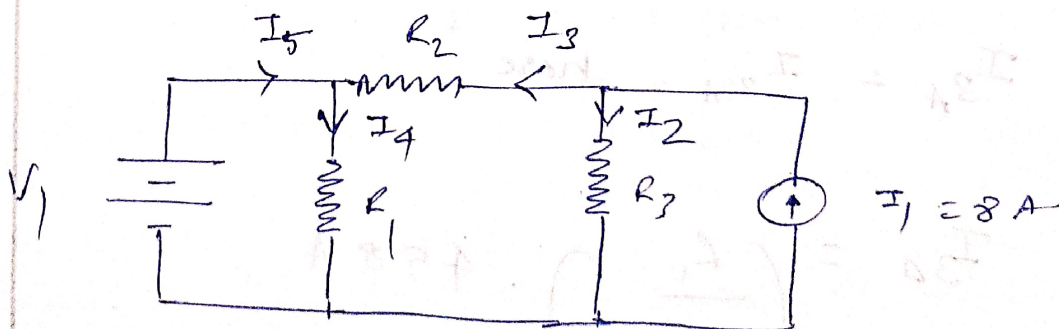 I5 R2 I3
I4 I2
V1 R1 R3 I1 = 8 A